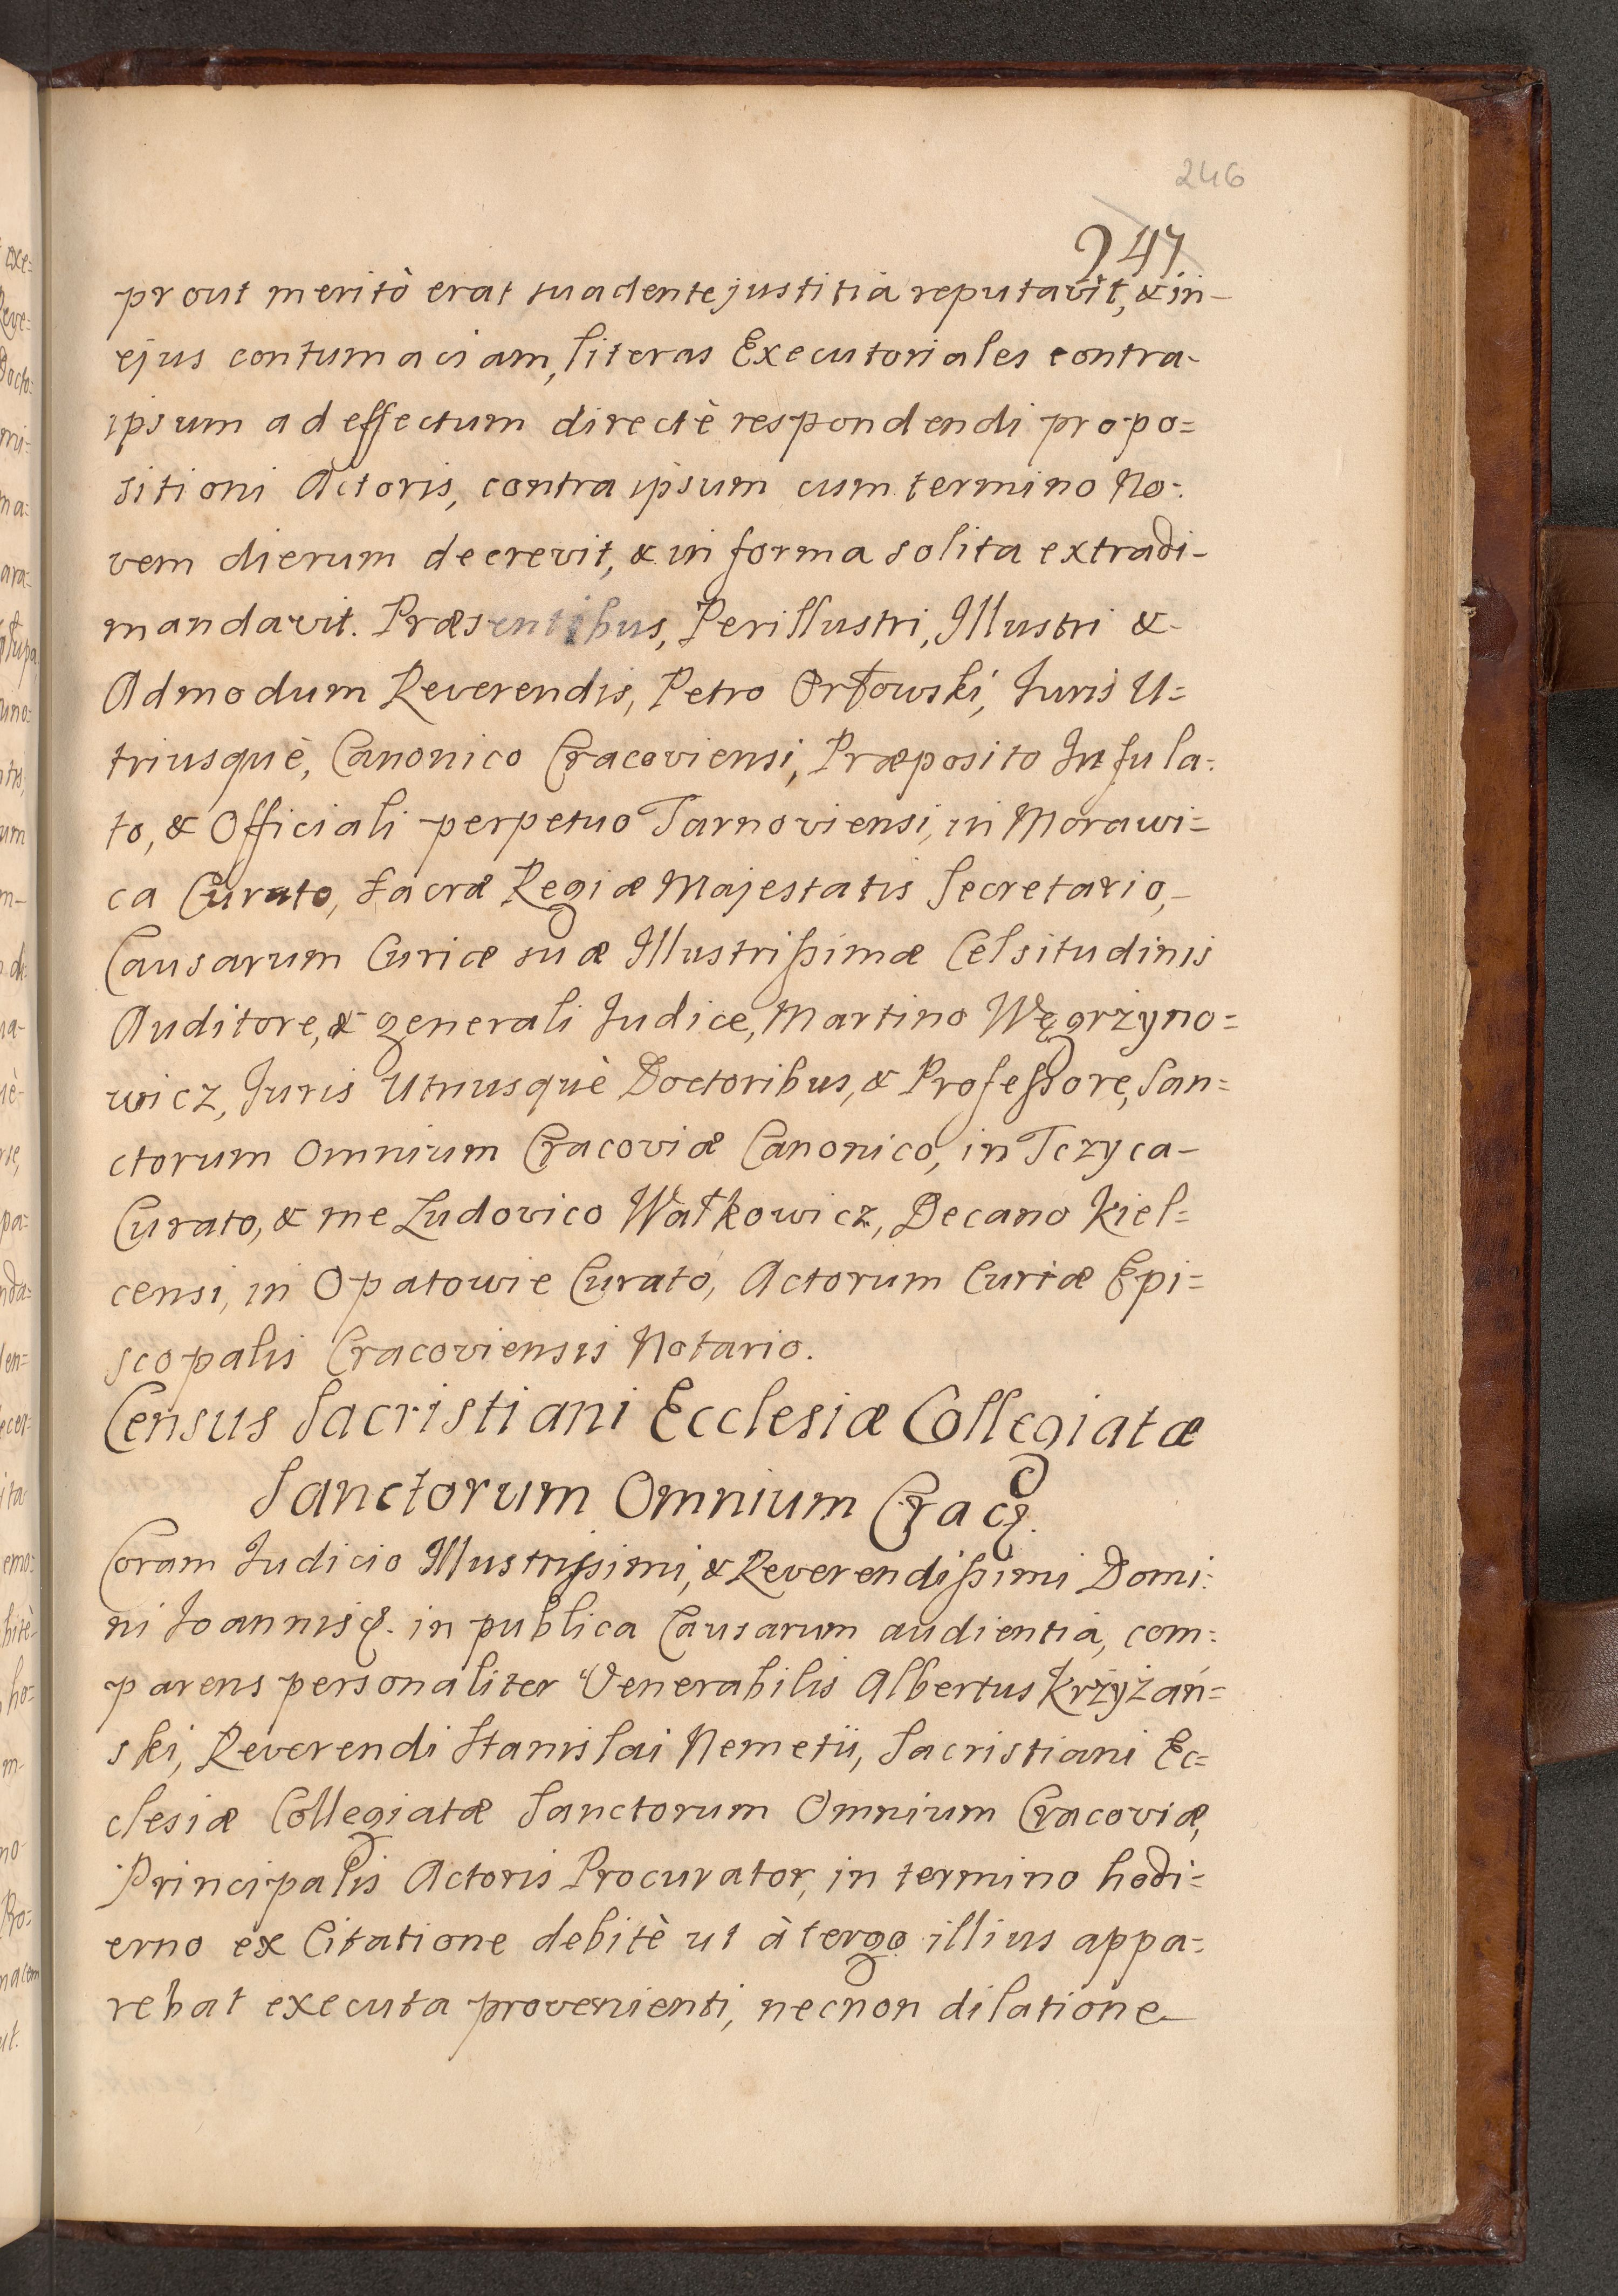 246
247
prout meritò erat suadente justitiâ reputavit, & in-
ejus contumaciam, literas Executoriales contra-
ipsum ad effectum directè respondendi propo=
sitioni Actoris, contra ipsum cum termino No=
vem dierum decrevit, & in forma solita extradi-
mandavit. Præsentibus, Perillustri, Illustri &
Admodum Reverendis, Petro Orłowski, Juris U=
triusquè, Canonico Cracoviensi, Præposito Infula=
to, & Officiali perpetuo Tarnoviensi, in Morawi=
ca Curato, Sacræ Regiæ Majestatis Secretario,-
Causarum Curiæ suæ Illustrißimæ Celsitudinis
Auditore, & generali Judice, Martino Węgrzyno=
wicz, Juris Utriusquè Doctoribus, & Profeßore, San=
ctorum Omnium Cracoviæ Canonico, in Tczyca-
Curato, & me Ludovico Wałkowicz, Decano Kiel=
censi, in Opatowie Curato, Actorum Curiæ Epi=
scopalis Cracoviensis Notario.
Census Sacristiani Ecclesiæ Collegiatæ
Sanctorum Omnium Crac&.
Coram Judicio Illustrißimi, & Reverendißimi Domi=
ni Joannis &. in publica Causarum audientia, com=
parens personaliter Venerabilis Albertus Krzyżań=
ski, Reverendi Stanislai Nemetii, Sacristiani Ec=
clesiæ Collegiatæ Sanctorum Omnium Cracoviæ,
Principalis Actoris Procurator, in termino hodi=
erno ex Citatione debitè ut à tergo illius appa=
rebat executa provenienti, necnon dilatione